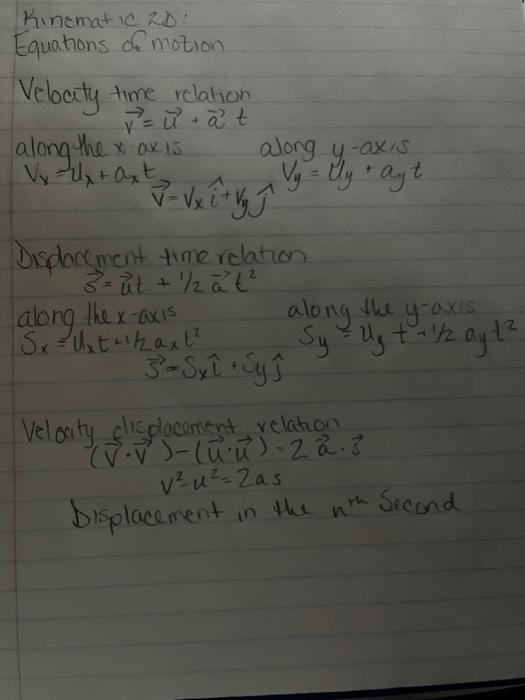 Kinematic 2D:
Equations of motion
Velocity time relation
v⃗ = u⃗ + a⃗ t
along the x-axis along y-axis
Vₓ = Uₓ + aₓt Vy = Uy + ayt
v⃗ = Vₓ î + Vy ĵ
Displacement time relation
s⃗ = u⃗t + 1/2 a⃗ t²
along the x-axis along the y-axis
Sₓ = Uₓt + 1/2 aₓt² Sy = Uy t + 1/2 ayt²
s⃗ = Sₓî + Syĵ
Velocity displacement relation
(v⃗·v⃗) - (u⃗·u⃗) = 2 a⃗·s⃗
v² - u² = 2as
Displacement in the nth Second